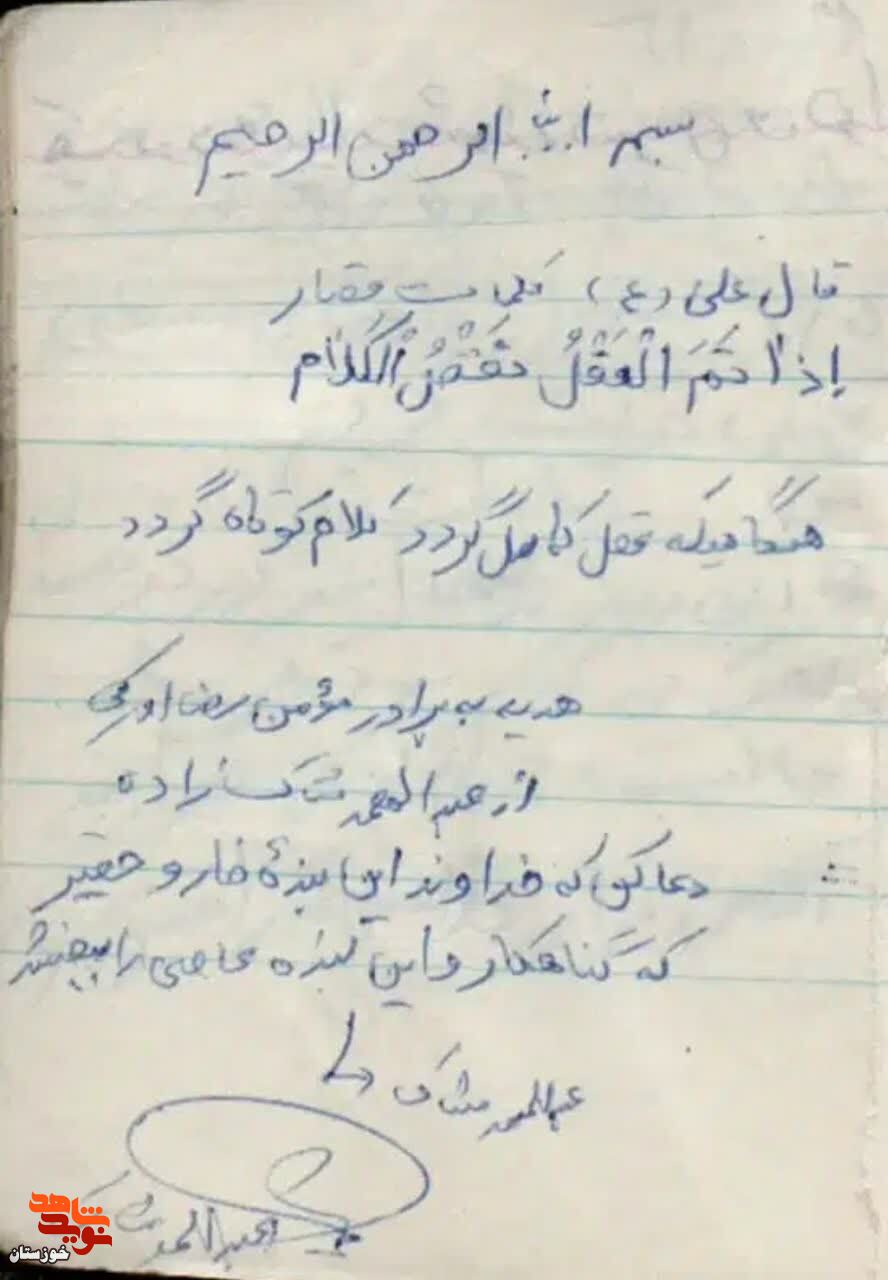 بسم الله الرحمن الرحیم
قال علی (ع) کلمات قصار
إِذٰا تَمَّ الْعَقْلُ نَقَصَ الْکَلٰام
هنگامیکه عقل کامل گردد کلام کوتاه گردد
هدیه به برادر مؤمن رضا اورکی
از عبدالمحمد شاک زاده
دعا کن که خداوند این بندۀ خار و حقیر
که گناهکار و این بنده عاصی را ببخشد
عبدالمحمد شاک
عبدالمحمد
نوید شاهد
خوزستان